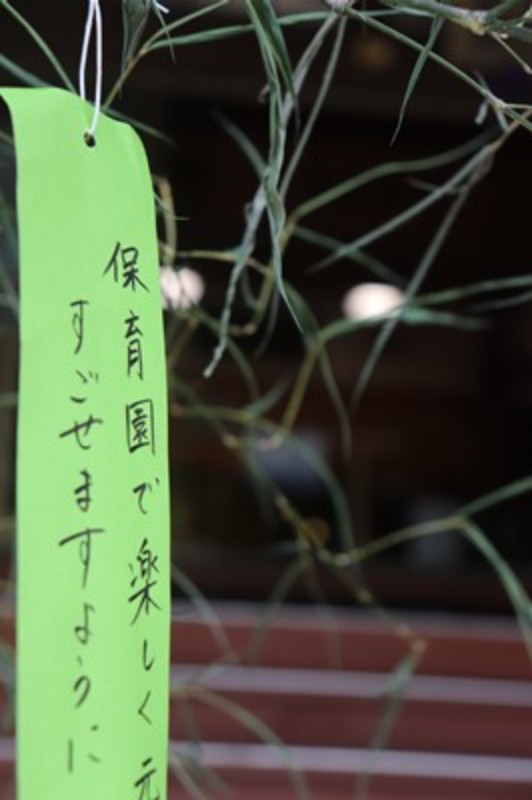 保育園で楽しく元
すごせますように